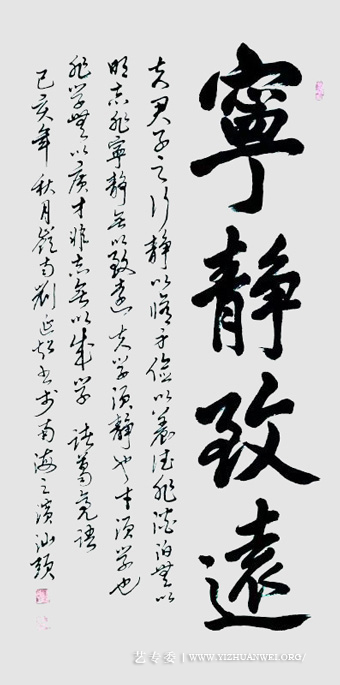 寧靜致遠
夫君子之行静以脩身儉以養德非澹泊無以
明志非寧静無以致遠夫学須静也才須学也
非学無以广才非志無以成学 諸葛亮语
己亥年秋月嶺南劉延超书于南海之濱汕头
艺专委 | WWW.YIZHUANWEI.ORG/